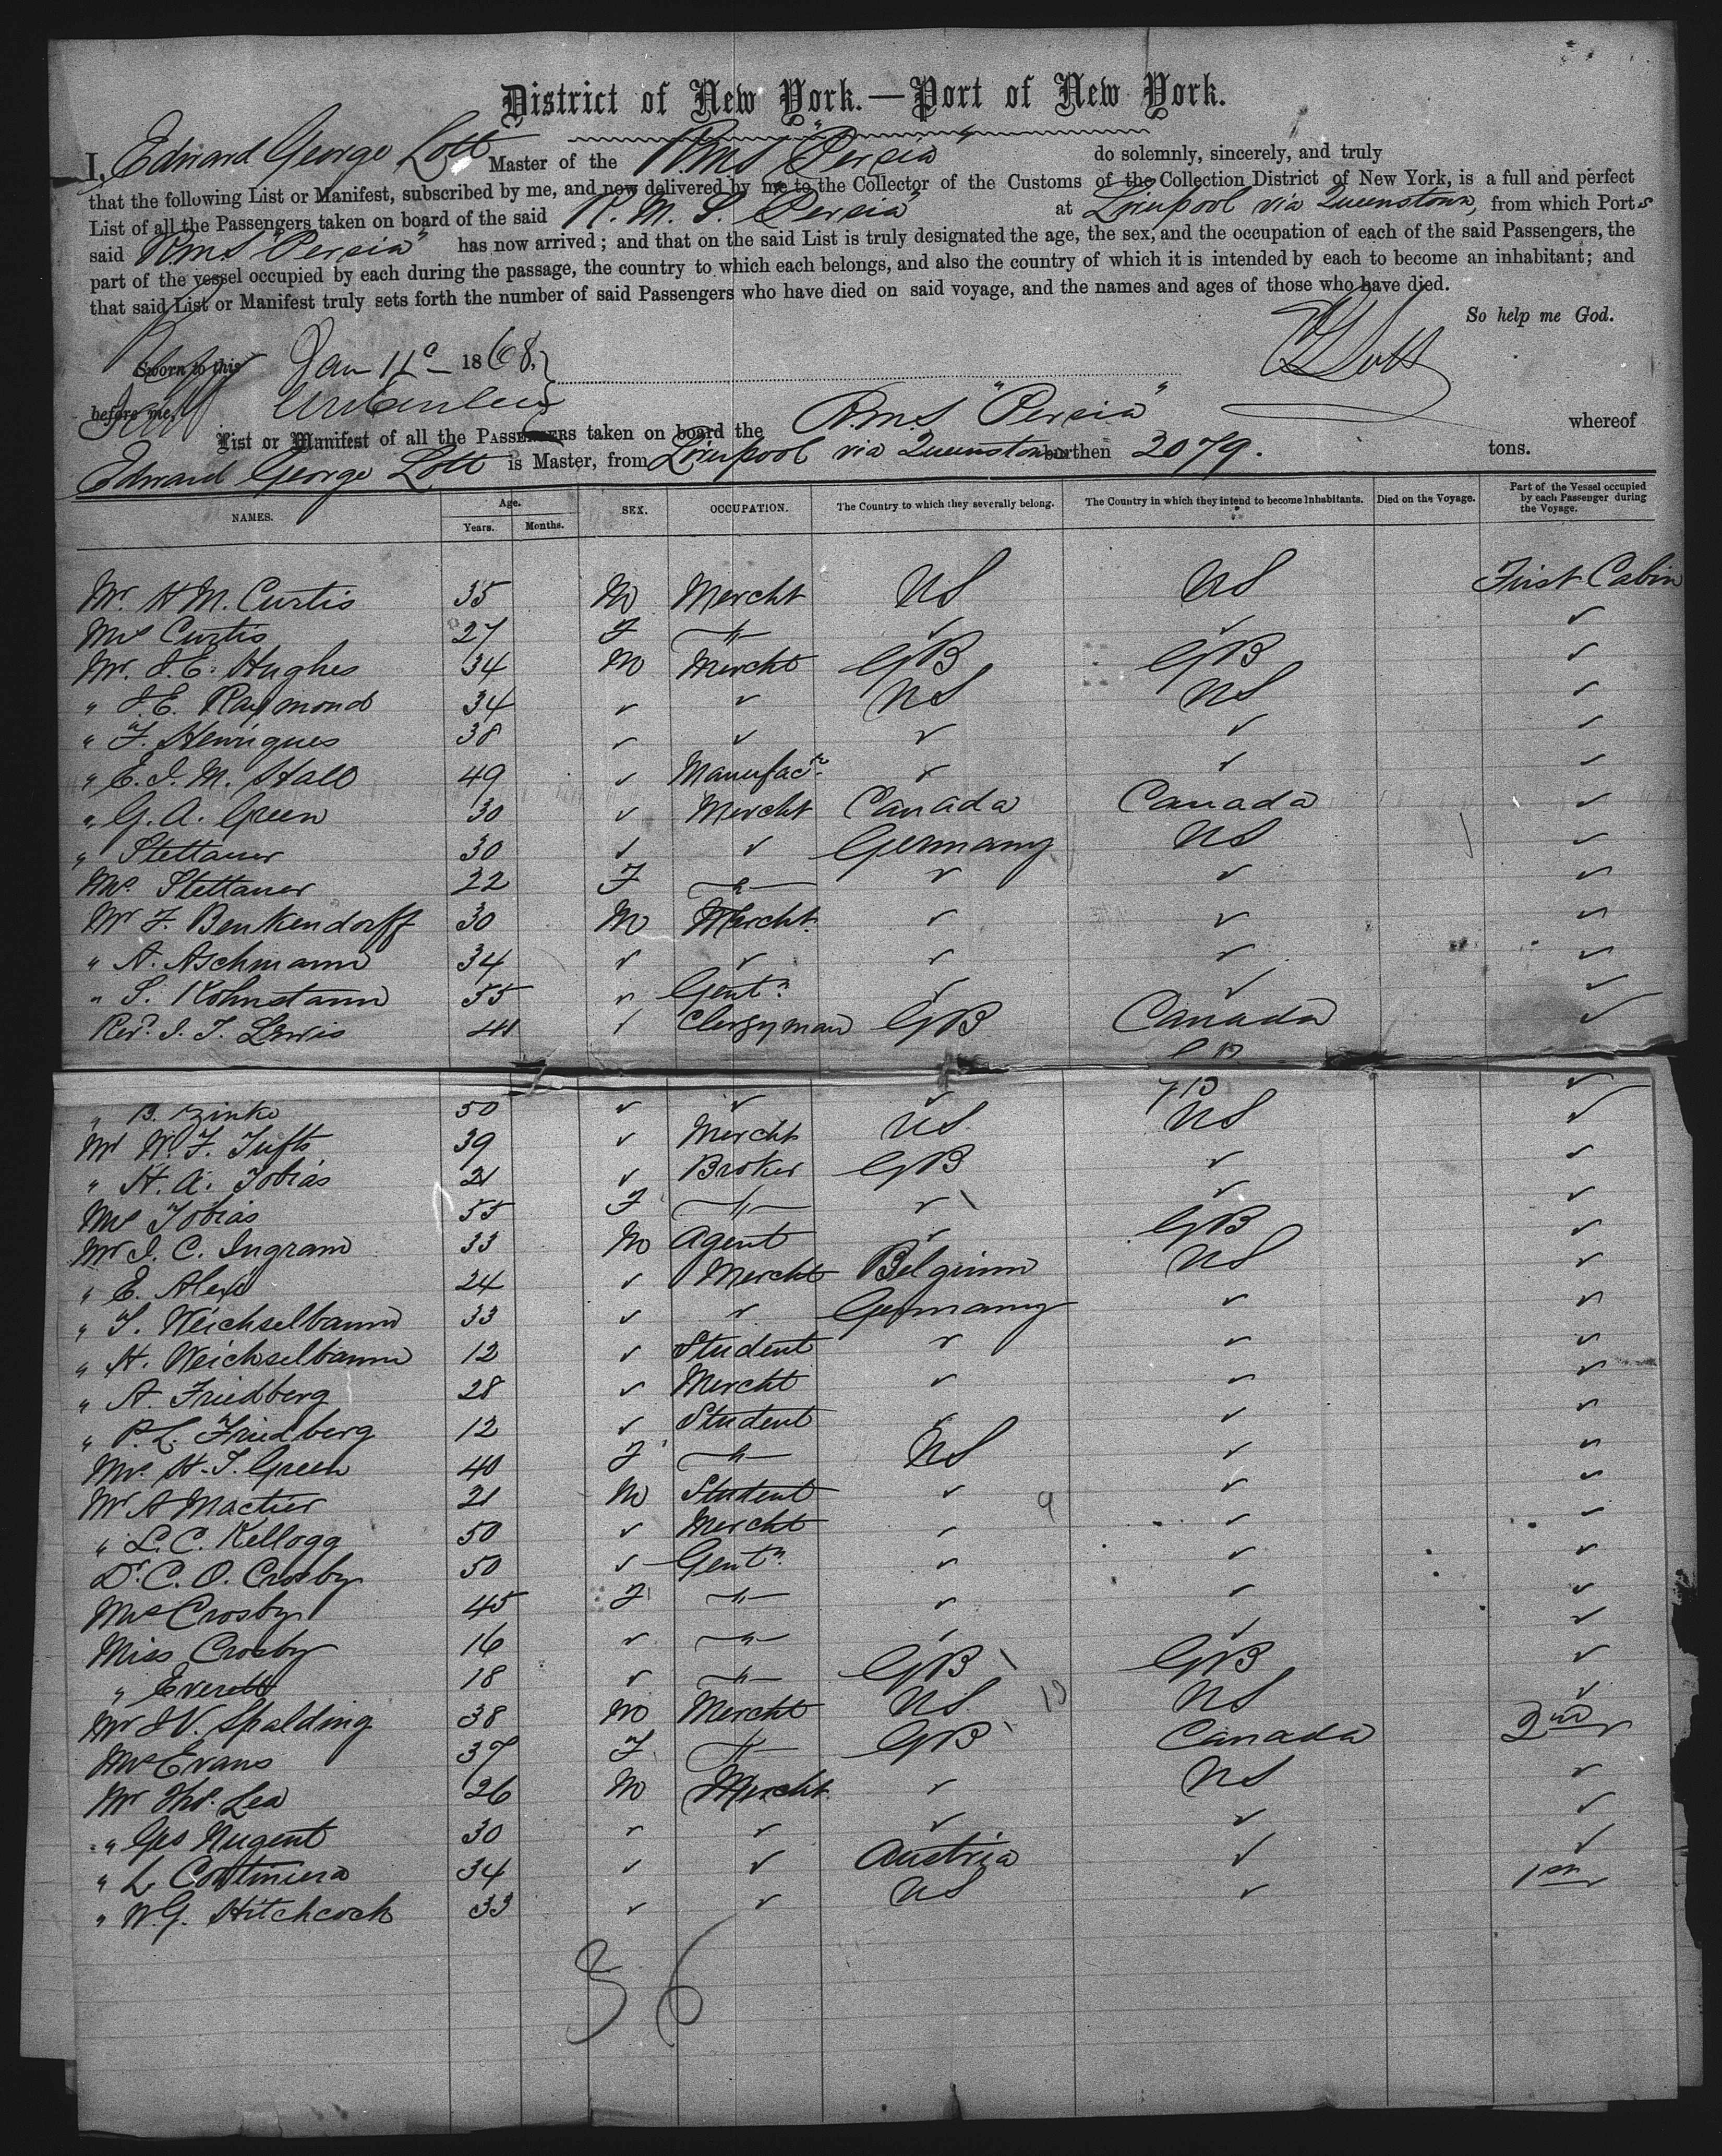 District of New York.—Port of New York.
I, Edward George Lott Master of the R.M.S "Persia" do solemnly, sincerely, and truly
that the following List or Manifest, subscribed by me, and now delivered by me to the Collector of the Customs of the Collection District of New York, is a full and perfect
List of all the Passengers taken on board of the said R. M. S. "Persia" at Liverpool via Queenstown, from which Ports
said R.M.S "Persia" has now arrived; and that on the said List is truly designated the age, the sex, and the occupation of each of the said Passengers, the
part of the vessel occupied by each during the passage, the country to which each belongs, and also the country of which it is intended by each to become an inhabitant; and
that said List or Manifest truly sets forth the number of said Passengers who have died on said voyage, and the names and ages of those who have died.
So help me God.
Sworn to this Jan 11 1868, EG Lott
before me,
List or Manifest of all the PASSENGERS taken on board the R.M.S "Persia" whereof
Edward George Lott is Master, from Liverpool via Queenstown burthen 2079. tons.
NAMES. Age. Years. Months. SEX. OCCUPATION. The Country to which they severally belong. The Country in which they intend to become Inhabitants. Died on the Voyage. Part of the Vessel occupied by each Passenger during the Voyage.
Mr. H M. Curtis 35 M Mercht US US First Cabin
Mrs Curtis 27 F " ✓ ✓ ✓
Mr. J. E. Hughes 34 M Mercht GB GB ✓
" J. E. Raymond 34 ✓ ✓ US US ✓
" F. Henriques 38 ✓ ✓ ✓ ✓ ✓
" E. J. M. Hall 49 ✓ Manufacr. ✓ ✓ ✓
" G. A. Green 30 ✓ Mercht Canada Canada ✓
" Stettauer 30 ✓ ✓ Germany US ✓
Mrs. Stettauer 22 F " ✓ ✓ ✓
Mr F. Benkendorff 30 M Mercht. ✓ ✓ ✓
" A. Aschmann 34 ✓ ✓ ✓ ✓ ✓
" S. Kohnstamm 55 ✓ Gentn. ✓ ✓ ✓
Revd. J. T. Lewis 41 ✓ Clergyman GB Canada ✓
" B. 50 ✓ ✓ ✓ ✓
Mr W. F. Tufts 39 ✓ Mercht US US ✓
" H. A. Tobias 21 ✓ Broker GB ✓ ✓
Mrs Tobias 55 F " ✓ ✓ ✓
Mr J. C. Ingram 33 M Agent ✓ GB ✓
" E. Alexis 24 ✓ Mercht Belgium US ✓
" S. Weichselbaum 33 ✓ ✓ Germany ✓ ✓
" H. Weichselbaum 12 ✓ Student ✓ ✓ ✓
" A. Friedberg 28 ✓ Mercht ✓ ✓ ✓
" P. L. Friedberg 12 ✓ Student ✓ ✓ ✓
Mrs. H. T. Green 40 F " US ✓ ✓
Mr A Mactier 21 M Student ✓ ✓ ✓
" L. C. Kellogg 50 ✓ Mercht ✓ ✓ ✓
Dr. C. O. Crosby 50 ✓ Gentn. ✓ ✓ ✓
Mrs Crosby 45 F " ✓ ✓ ✓
Miss Crosby 16 ✓ " ✓ ✓ ✓
" Everett 18 ✓ " GB GB ✓
Mr J V. Spalding 38 M Mercht US US ✓
Mrs Evans 37 F " GB Canada 2nd
Mr Thos. Lea 26 M Mercht ✓ US ✓
" Geo Nugent 30 ✓ ✓ ✓ ✓ ✓
" L 34 ✓ ✓ Austria ✓ ✓
" W. G. Hitchcock 33 ✓ ✓ US ✓ 1st
36